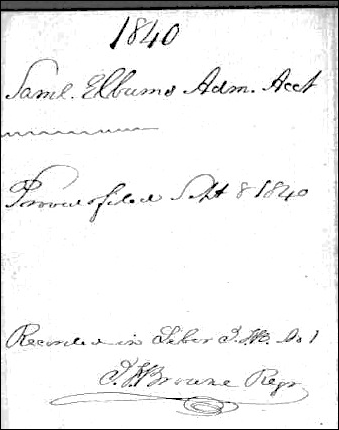 1840
Saml. Elburns Adm. Acct
Proved & filed Sept 8 1840
Recorded in Liber T.W.B. No 1
T.W. Browne Regr